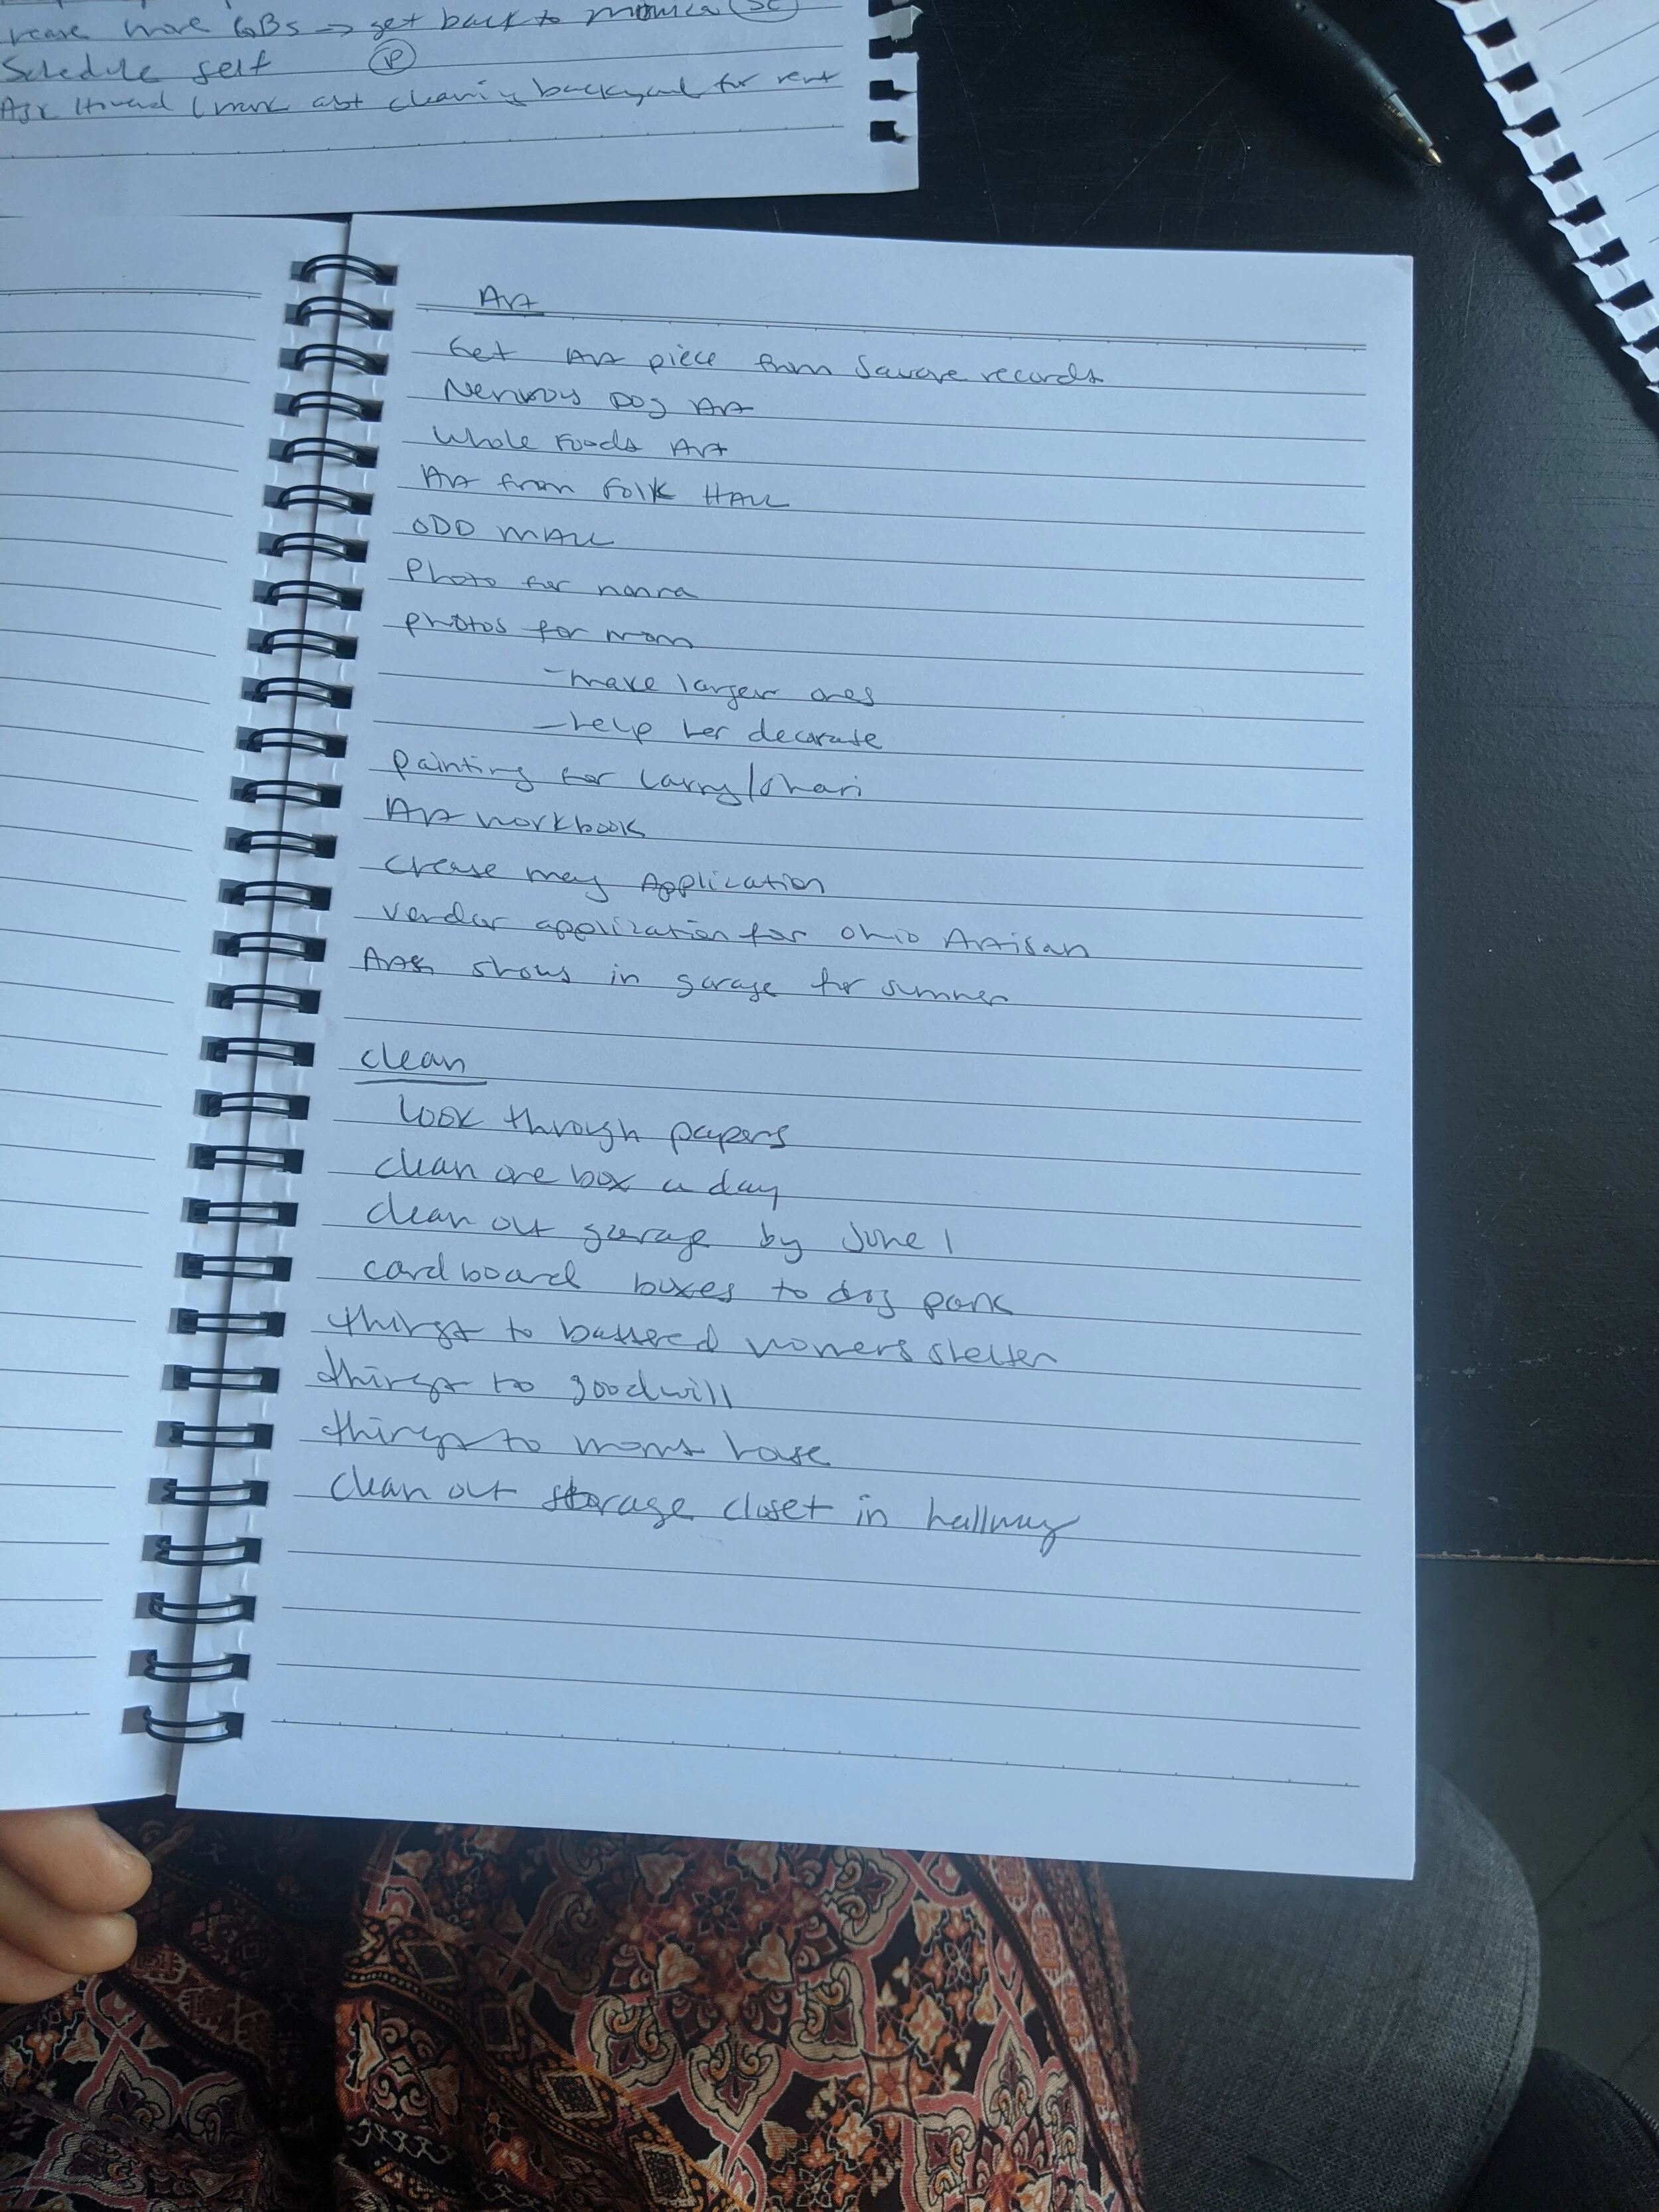 more GBs → get back to monica
Schedule self P
cleaning backyard for rent
Art
Get Art piece from Square records
Nervous Dog Art
Whole Foods Art
Art from Folk HALL
ODD MALL
Photo for nonna
photos for mom
-make larger ones
-help her decorate
painting for Larry/Shari
Art workbook
create may Application
vendor application for Ohio Artisan
shows in garage for summer
clean
look through papers
clean one box a day
clean out garage by June 1
cardboard boxes to dog park
things to battered womens shelter
things to goodwill
things to moms house
clean out storage closet in hallway